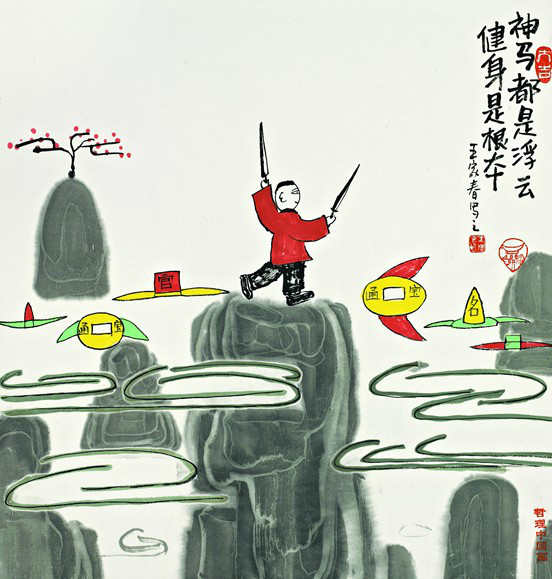 神马都是浮云
健身是根本
王家春写之
大吉
官
通宝
通宝
名
哲理中国画